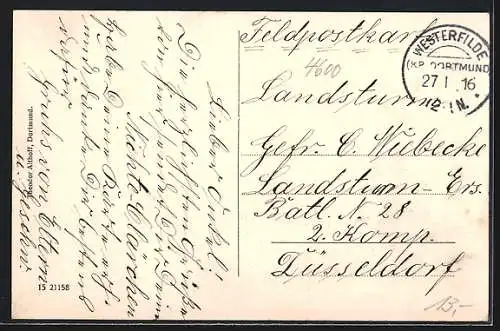 Feldpostkarte
4600
WESTERFILDE
(KR. DORTMUND)
27 1 16
12-1 N.
Landsturm
Gefr. C. Wiebecke
Landsturm-Ers.
Batl. N. 28
2. Komp.
Düsseldorf
Lieber Onkel!
Die herzlichsten Grüße
sendet Dir Deine
Nichte Clärchen
habe Deine Karte erh.
und danke Dir bestens
dafür
Gruß von Eltern
u. Geschw.
Theodor Althoff, Dortmund.
15 21158
13,-